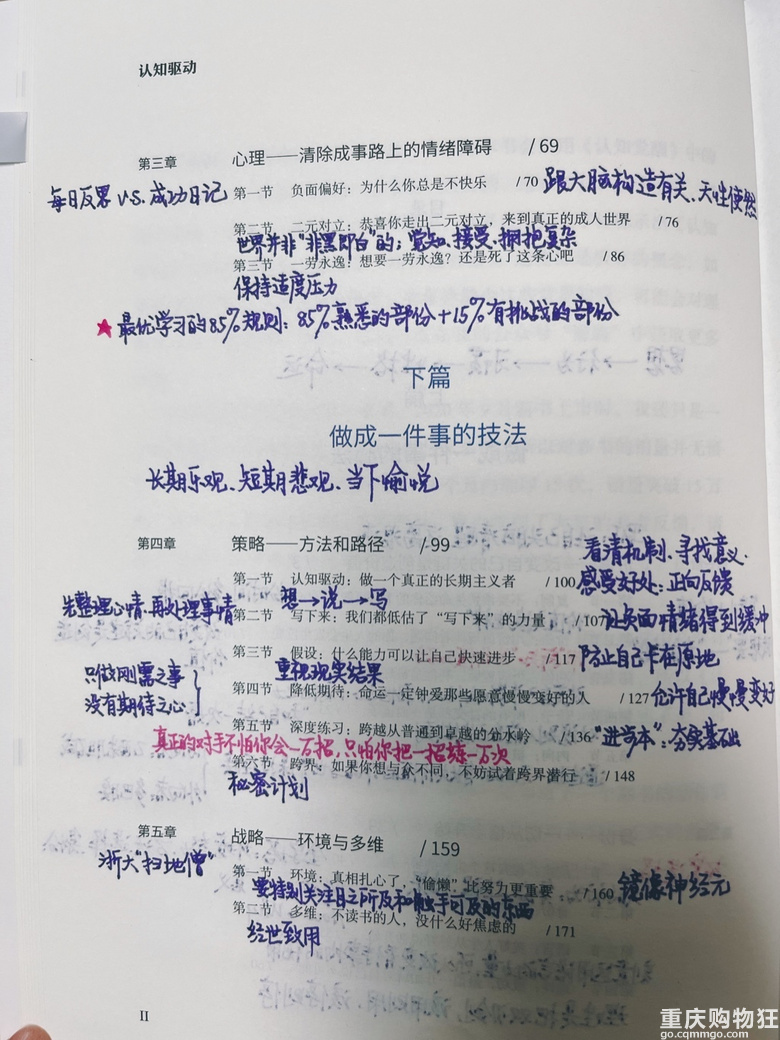 认知驱动
第三章 心理——清除成事路上的情绪障碍 / 69
每日反思 VS. 成功日记
第一节 负面偏好：为什么你总是不快乐 / 70
跟大脑构造有关、天性使然
第二节 二元对立：恭喜你走出二元对立，来到真正的成人世界 / 76
世界并非“非黑即白”的；觉知、接受、拥抱复杂
第三节 一劳永逸？想要一劳永逸？还是死了这条心吧 / 86
保持适度压力
★ 最优学习的85%规则：85%熟悉的部份+15%有挑战的部份
下篇
做成一件事的技法
长期乐观、短期悲观、当下愉悦
第四章 策略——方法和路径 / 99
看清机制、寻找意义.
第一节 认知驱动：做一个真正的长期主义者 / 100
感受好处：正向反馈
先整理心情，再处理事情
想→说→写
第二节 写下来：我们都低估了“写下来”的力量 / 107
让负面情绪得到缓冲
第三节 假设：什么能力可以让自己快速进步 / 117
防止自己卡在原地
只做刚需之事
没有期待之心
重视现实结果
第四节 降低期待：命运一定钟爱那些愿意慢慢变好的人 / 127
允许自己慢慢变好
第五节 深度练习：跨越从普通到卓越的分水岭 / 136
“进步本”：夯实基础
真正的对手不怕你会一万招，只怕你把一招练一万次
第六节 跨界：如果你想与众不同，不妨试着跨界潜行 / 148
秘密计划
第五章 战略——环境与多维 / 159
浙大“扫地僧”
第一节 环境：真相扎心了，“偷懒”比努力更重要 / 160
镜像神经元
要特别关注目之所及和触手可及的东西
第二节 多维：不读书的人，没什么好焦虑的 / 171
经世致用
II
重庆购物狂
go.cqmmgo.com